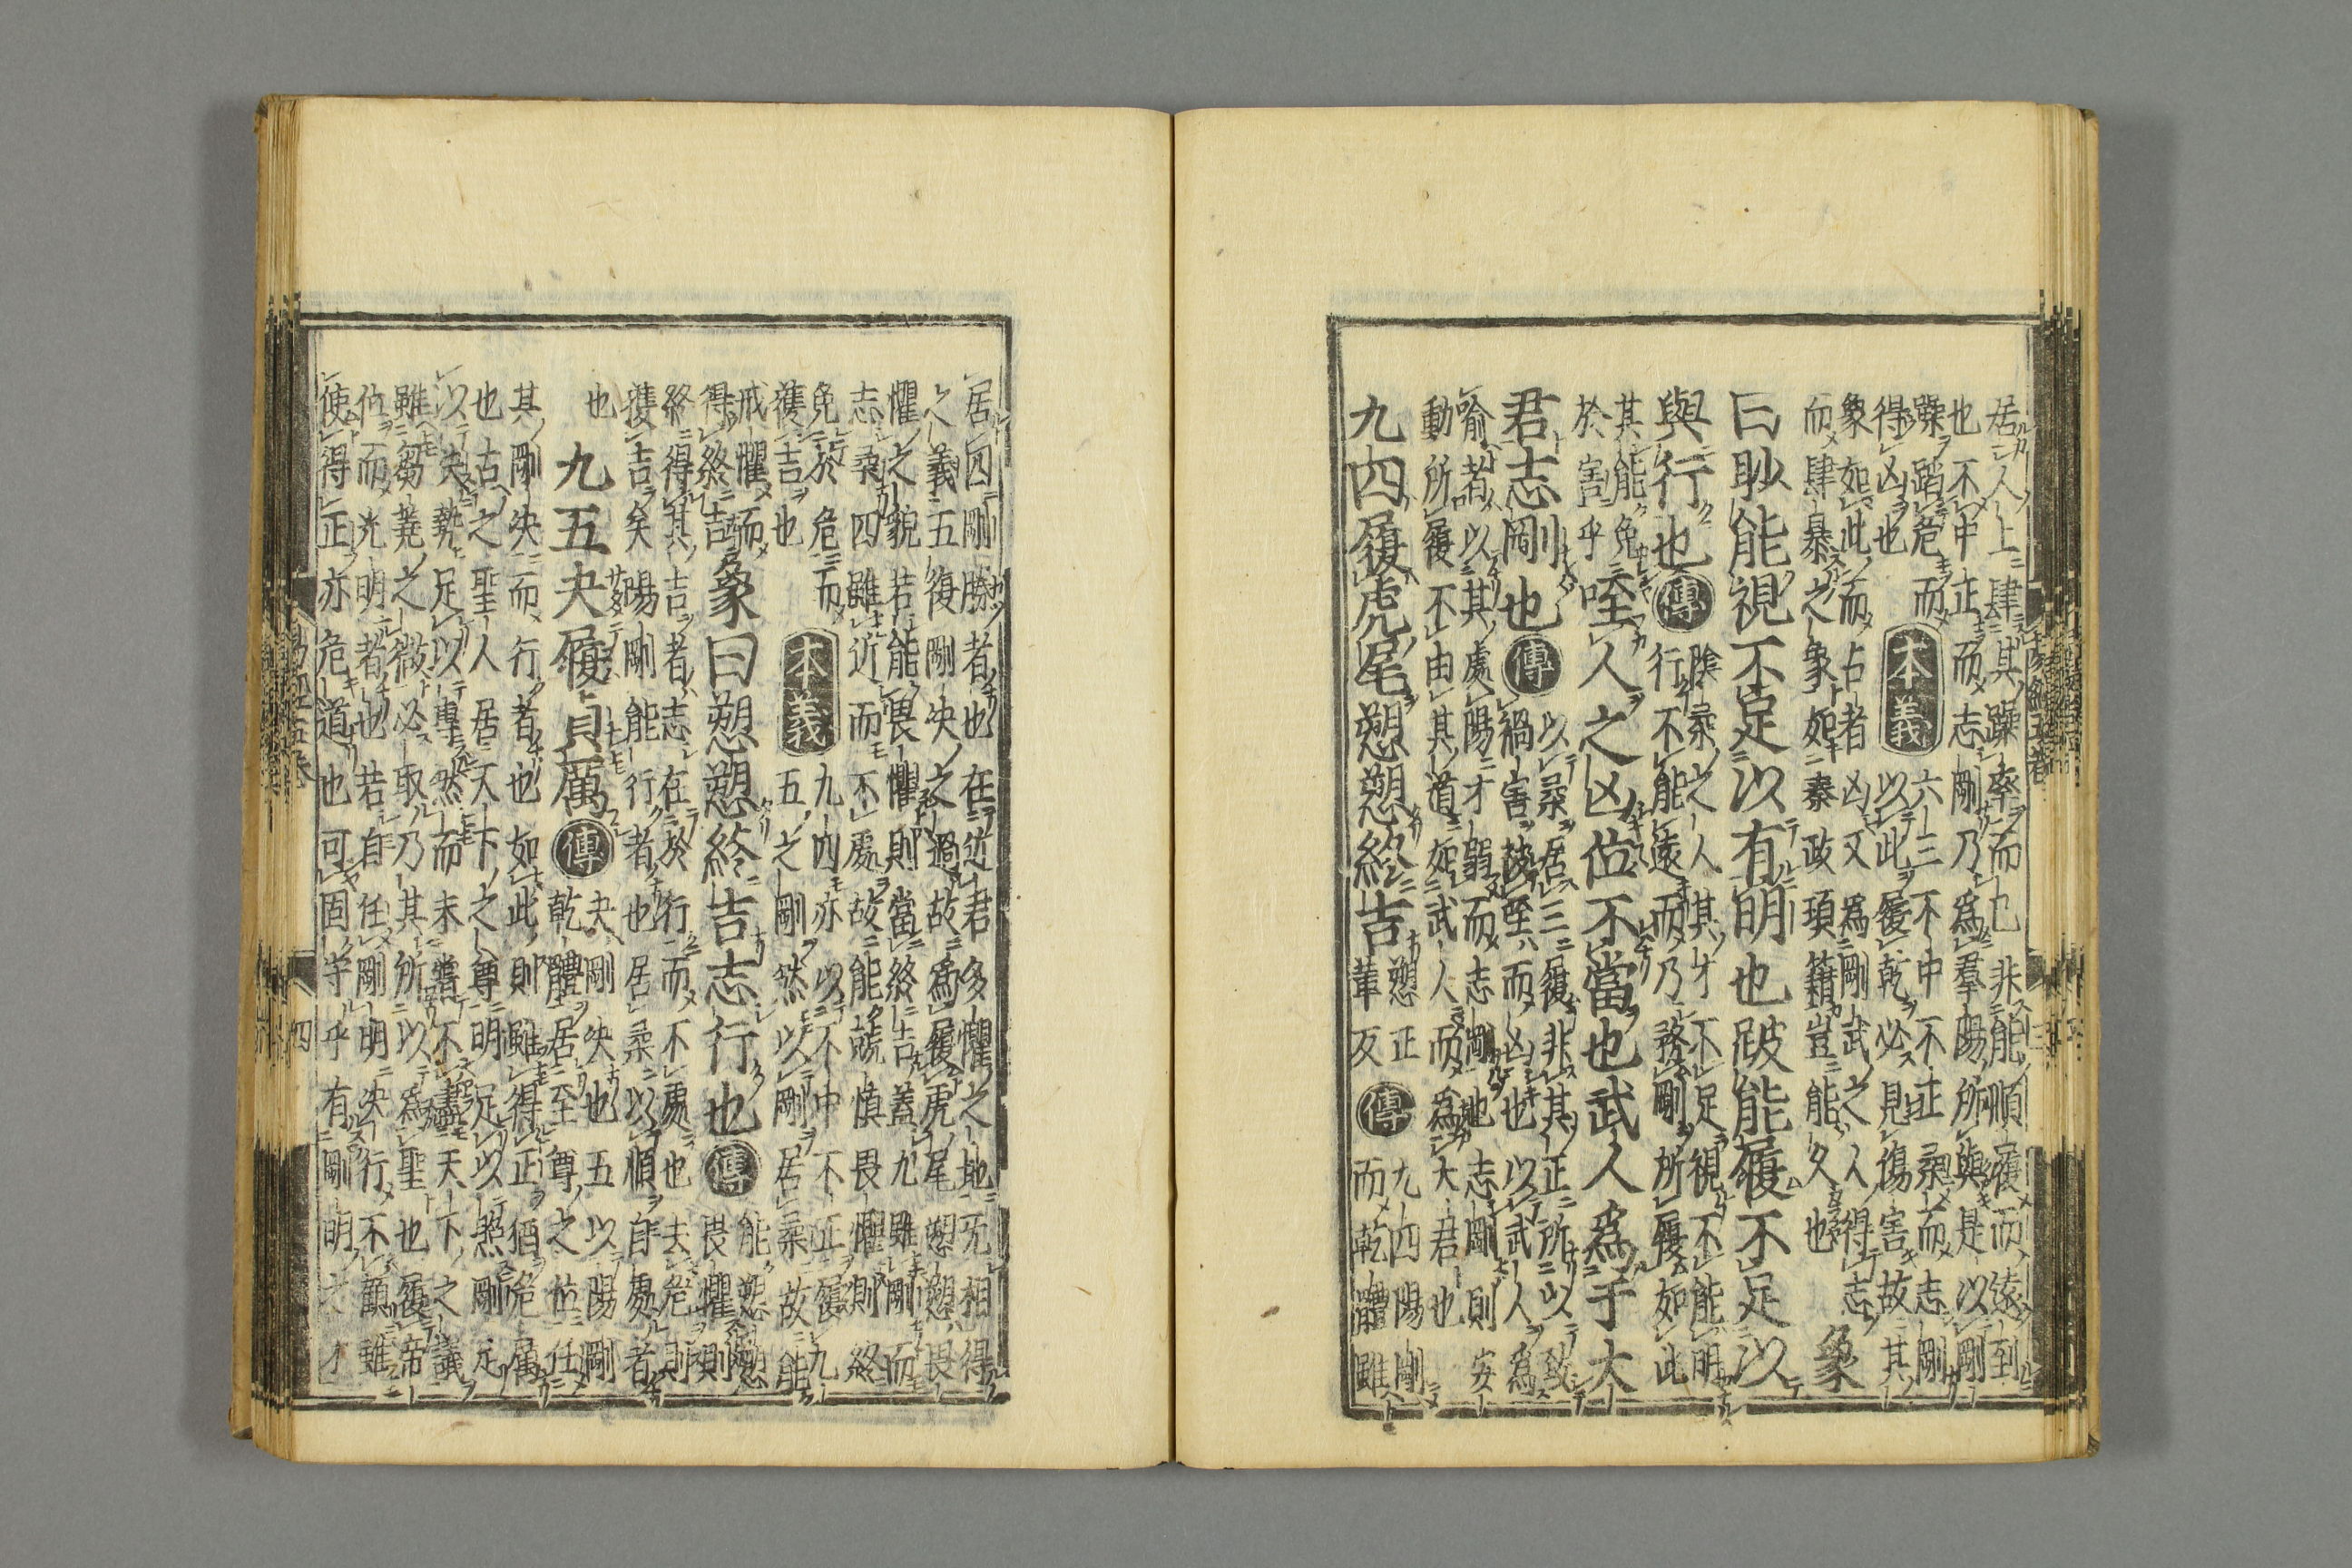 居人上肆其躁率而已非能順履而遠到
也不中正而志剛乃為羣陽所與是以剛
躁蹈危而
得凶也
本義
六三不中不正柔而志剛
以此履乾必見傷害故其
象如此而占者凶又為剛武之人得志
而肆暴之象如秦政項籍豈能久也
象
曰眇能視不足以有明也跛能履不足以
與行也
傳
陰柔之人其才不足視不能明
行不能遠而乃務剛所履如此
其能免
於害乎
咥人之凶位不當也武人為于大
君志剛也
傳
以柔居三履非其正所以致
禍害被咥而凶也以武人為
喻者以其處陽才弱而志剛也志剛則妄
動所履不由其道如武人而為大君也
九四履虎尾愬愬終吉
愬正
革反
傳
九四陽剛
而乾體雖
居四剛勝者也在近君多懼之地无相得
之義五復剛決之過故為履虎尾愬愬畏
懼之貌若能畏懼則當終吉蓋九雖剛而
志柔四雖近而不處故能兢慎畏懼則終
免於危而
獲吉也
本義
九四亦以不中不正履九
五之剛然以剛居柔故能
戒懼而
得終吉
象曰愬愬終吉志行也
傳
能愬愬
畏懼則
終得其吉者志在於行而不處也去危則
獲吉矣陽剛能行者也居柔以順自處者
也
九五夬履貞厲
傳
夬剛決也五以陽剛
乾體居至尊之位任
其剛決而行者也如此則雖得正猶危厲
也古之聖人居天下之尊明足以照剛足
以決勢足以專然而未嘗不盡天下之議
雖芻蕘之微必取乃其所以為聖也履帝
位而光明者也若自任剛明決行不顧雖
使得正亦危道也可固守乎有剛明之才
易經五卷
四